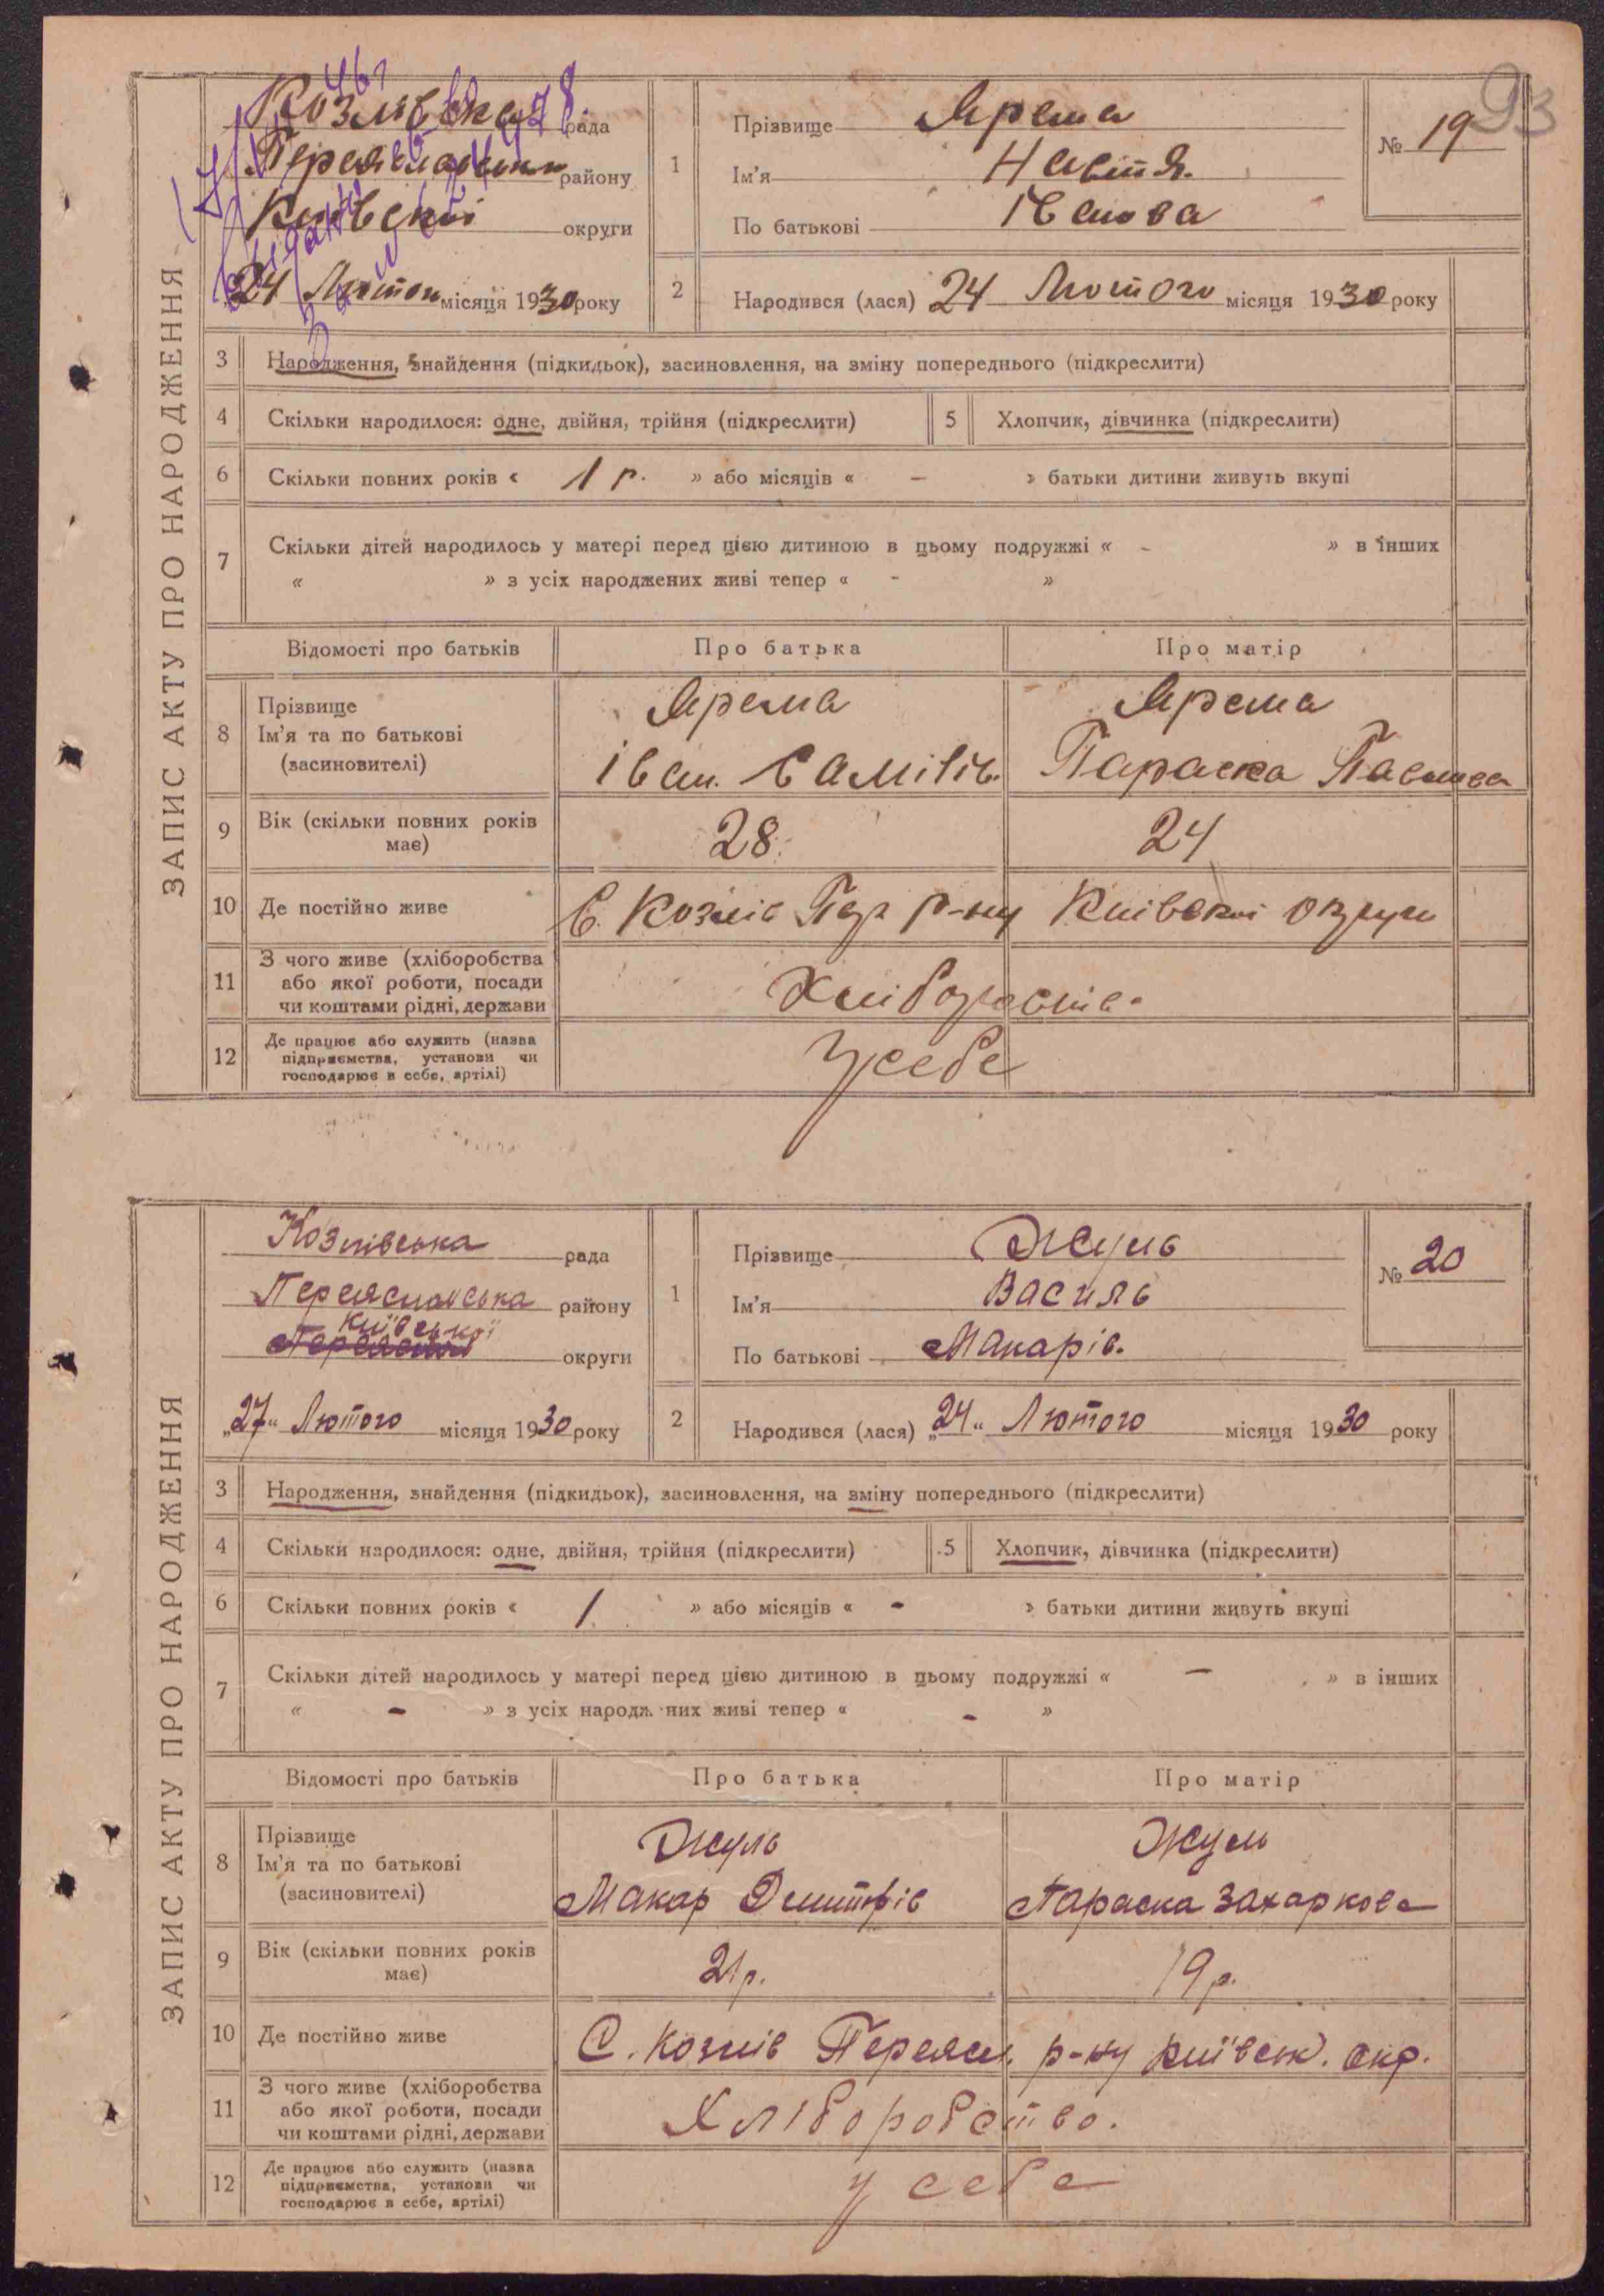 93
ЗАПИС АКТУ ПРО НАРОДЖЕННЯ
Козлівська рада
Переяславськ району
Київської округи
24 Лютого місяця 1930 року
1 Прізвище Ярема
Ім'я Настя.
По батькові Іванова
№ 19
2 Народився (лася) 24 Лютого місяця 1930 року
3 Народження, знайдення (підкидьок), засиновлення, на зміну попереднього (підкреслити)
4 Скільки народилося: одне, двійня, трійня (підкреслити) 5 Хлопчик, дівчинка (підкреслити)
6 Скільки повних років « 1 р. » або місяців « - » батьки дитини живуть вкупі
7 Скільки дітей народилось у матері перед цією дитиною в цьому подружжі « - » в інших
« » з усіх народжених живі тепер « - »
Відомості про батьків Про батька Про матір
8 Прізвище Ярема Ярема
Ім'я та по батькові Іван Параска Павлова
(засиновителі)
9 Вік (скільки повних років має) 28. 24
10 Де постійно живе С. Козлів Пер р-ну Київської округи
11 З чого живе (хліборобства
або якої роботи, посади
чи коштами рідні, держави
12 Де працює або служить (назва
підприємства, установи чи
господарює в себе, артілі) У себе
ЗАПИС АКТУ ПРО НАРОДЖЕННЯ
Козлівська рада
Переяславська району
Київської
округи
„27" Лютого місяця 1930 року
1 Прізвище Жуль
Ім'я Василь
По батькові Макарів.
№ 20
2 Народився (лася) „24" Лютого місяця 1930 року
3 Народження, знайдення (підкидьок), засиновлення, на зміну попереднього (підкреслити)
4 Скільки народилося: одне, двійня, трійня (підкреслити) 5 Хлопчик, дівчинка (підкреслити)
6 Скільки повних років « 1 » або місяців « - » батьки дитини живуть вкупі
7 Скільки дітей народилось у матері перед цією дитиною в цьому подружжі « - » в інших
« - » з усіх народж них живі тепер « - »
Відомості про батьків Про батька Про матір
8 Прізвище Жуль Жуль
Ім'я та по батькові Макар Дмитрів Параска Захаркова
(засиновителі)
9 Вік (скільки повних років має) 21р. 19р.
10 Де постійно живе С. Козлів Переясл. р-ну Київськ. окр.
11 З чого живе (хліборобства
або якої роботи, посади Хліборобство.
чи коштами рідні, держави
12 Де працює або служить (назва
підприємства, установи чи у себе
господарює в себе, артілі)